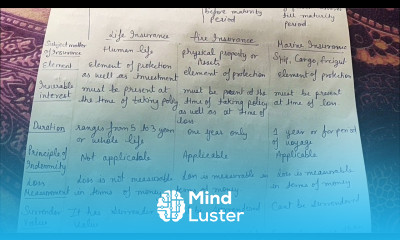 before maturity
period
till maturity
period
Life Insurance
Fire Insurance
Marine Insurance
Subject matter
of Insurance
Human life
physical property or
Assets
Ship, Cargo, freight
Element
Element of protection
as well as investment
element of protection
element of protection
Insurable
interest
must be present at
the time of taking policy
must be present at the
time of taking policy
as well as at time of
loss
must be present
at time of loss.
Duration
ranges from 5 to 30 years
or whole life
one year only
1 year or for period
of voyage
Principle of
Indemnity
Not applicable
Applicable
Applicable
Loss
Measurement
Loss is not measurable
in terms of money
Loss is measurable in
terms of money
Loss is measurable
in terms of money
Surrender
value
It has surrender
value
Cant be surrendered
Mind
Luster